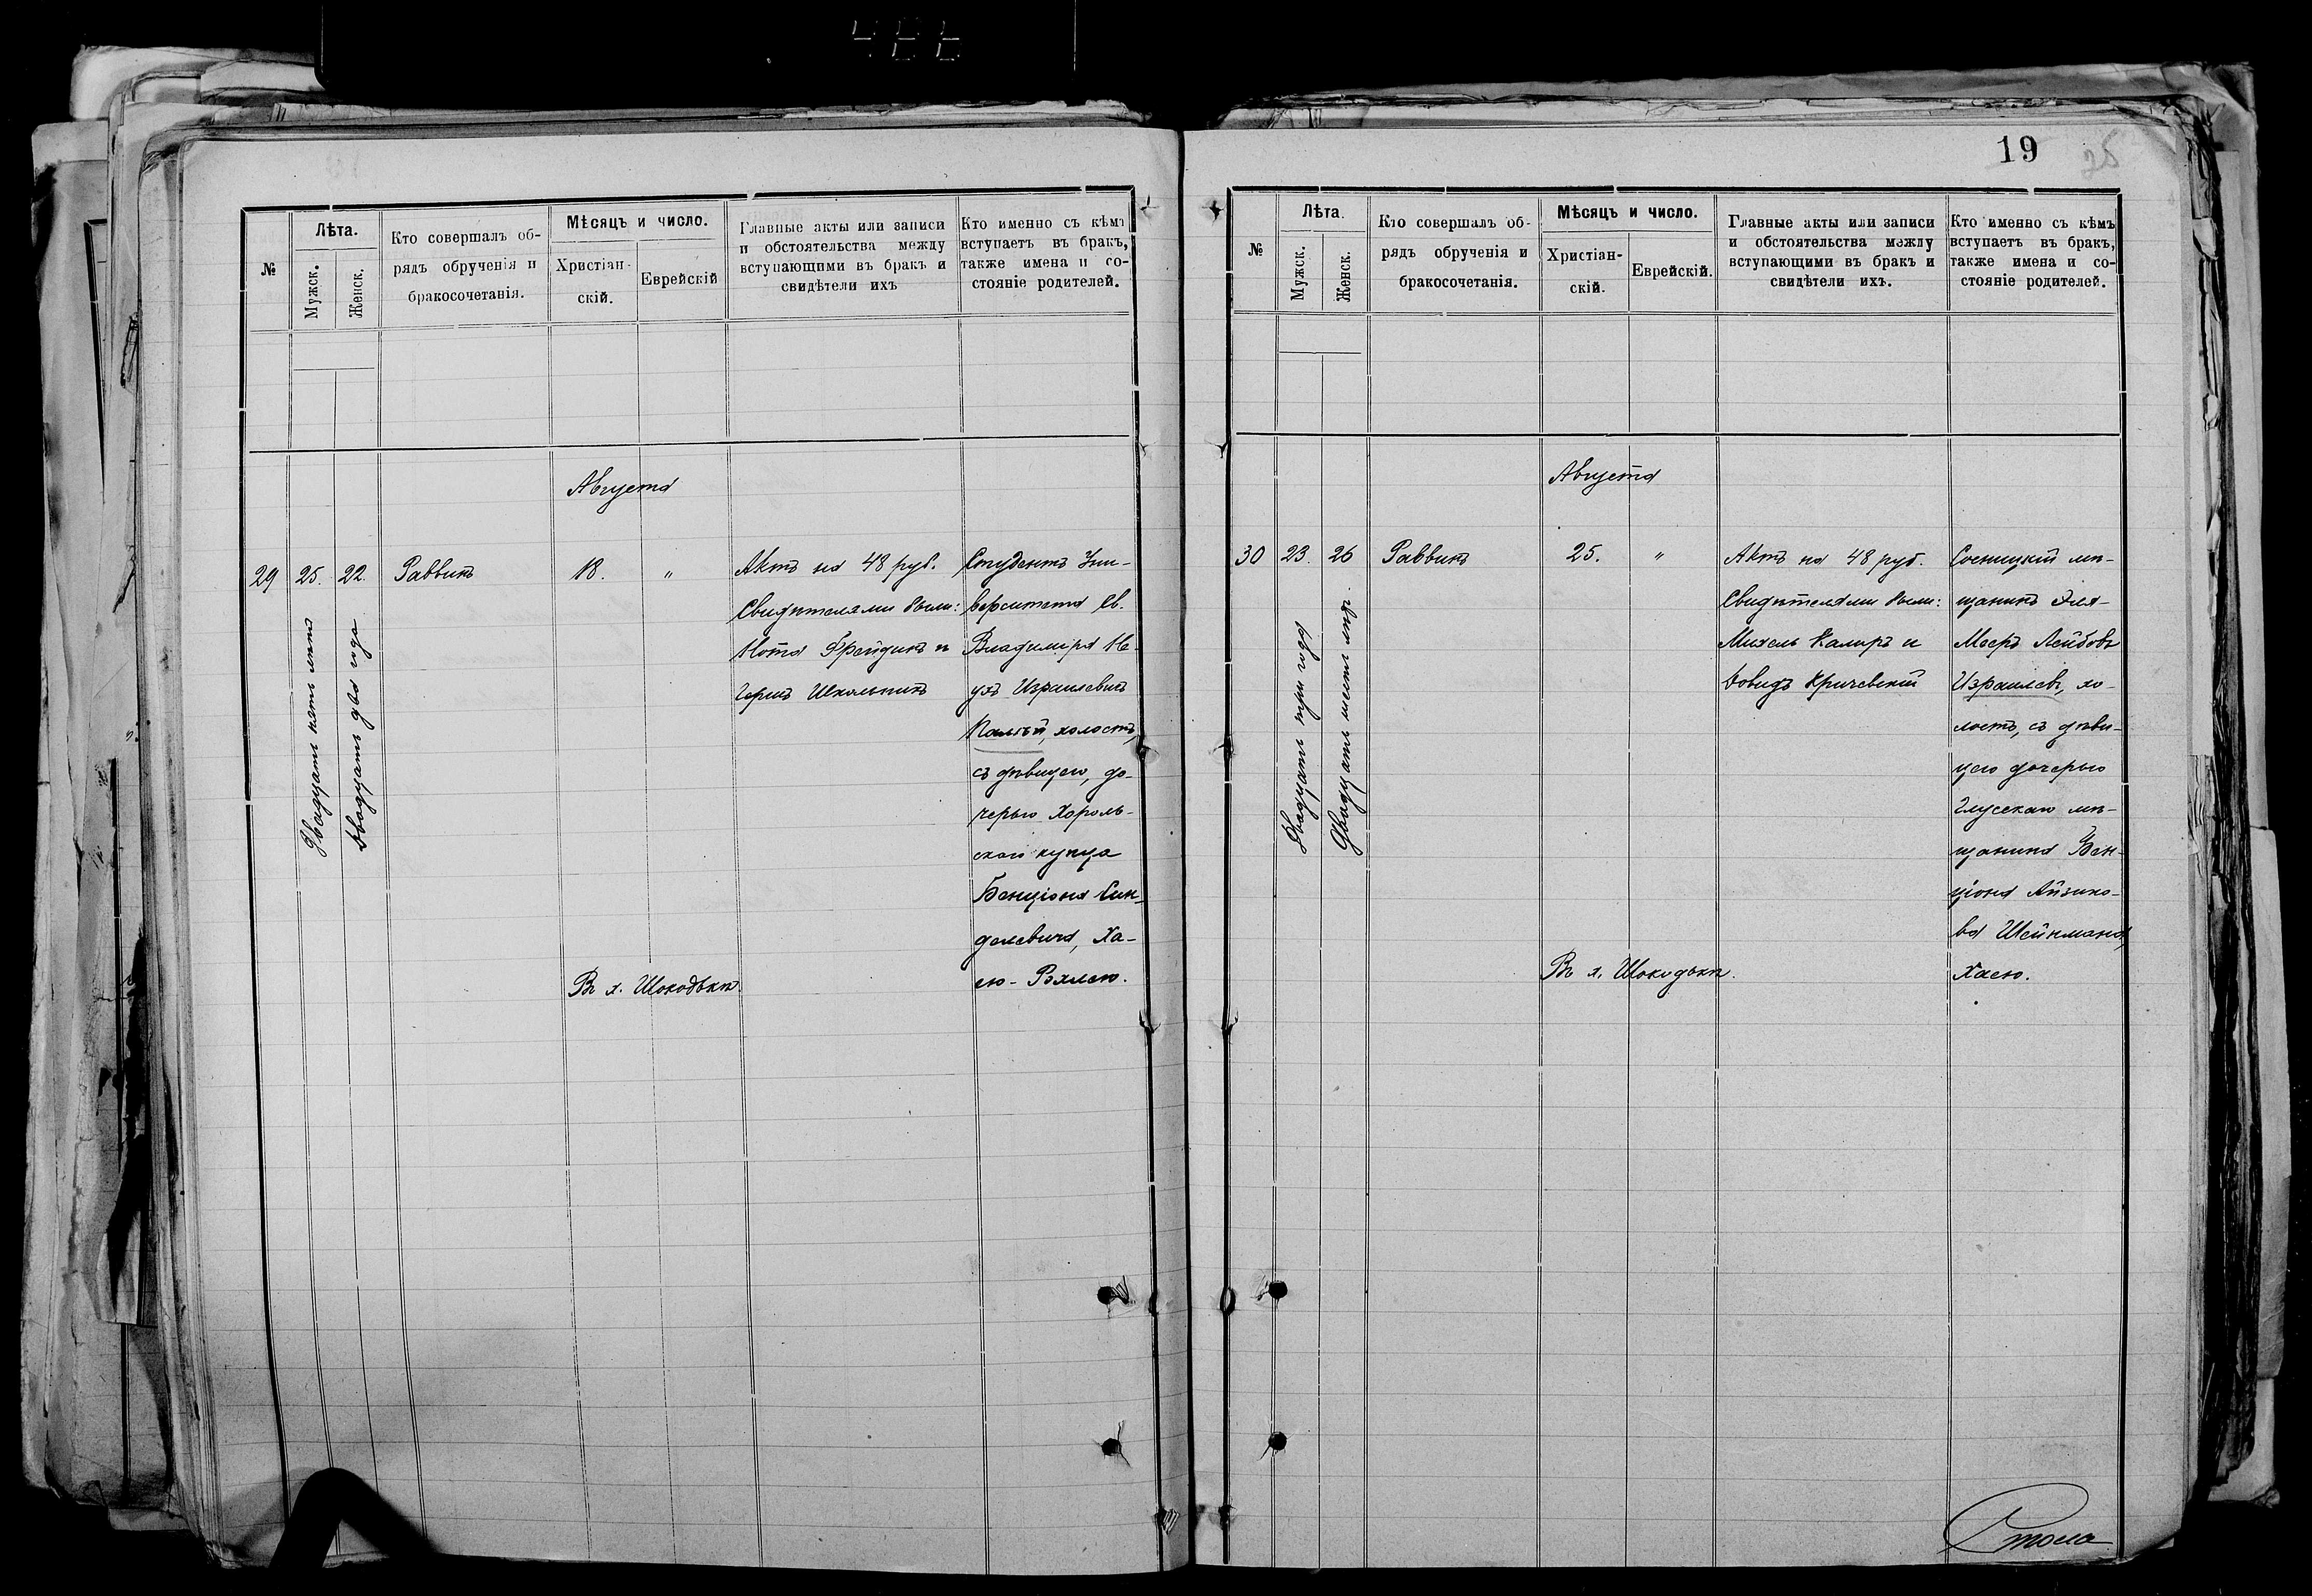 19
25
№
Лѣта.
Мужск.
Женск.
Кто совершалъ об-
рядъ обрученія и
бракосочетанія.
Мѣсяцъ и число.
Христіан-
скій.
Еврейскій
Главные акты или записи
и обстоятельства между
вступающими въ бракъ и
свидѣтели ихъ
Кто именно съ кѣмъ
вступаетъ въ бракъ,
также имена и со-
стояніе родителей.
Августа
29
25.
Двадцать пять лѣтъ
22.
Двадцать два года
Раввинъ
18.
"
Актъ на 48 руб.
Свидѣтелями были:
Нота Фрейдинъ и
Герцъ Школьникъ
Студентъ Уни-
верситета Св.
Владимира Не-
ухъ Израилевичъ
Палѣй, холостъ,
съ дѣвицею, до-
черью Хороль-
скаго купца
Бенціона Син-
делевича, Ха-
ею-
Въ х. Шокодькѣ.
№
Лѣта.
Мужск.
Женск.
Кто совершалъ об-
рядъ обрученія и
бракосочетанія.
Мѣсяцъ и число.
Христіан-
скій.
Еврейскій.
Главные акты или записи
и обстоятельства между
вступающими въ бракъ и
свидѣтели ихъ.
Кто именно съ кѣмъ
вступаетъ въ бракъ,
также имена и со-
стояніе родителей.
Августа
30
23.
Двадцать три года
26
Двадцать шесть лѣтъ.
Раввинъ
25.
"
Актъ на 48 руб.
Свидѣтелями были:
Михель Калиръ и
Довидъ Кричевскій
Сосницкій мѣ-
щанинъ Эля-
Мееръ Лейбовъ
Израилевъ, хо-
лостъ, съ дѣви-
цею дочерью
Глусскаго мѣ-
щанина Бен-
ціона Айзико-
ва Шейнмана,
Хаею.
Въ х. Шокодькѣ.